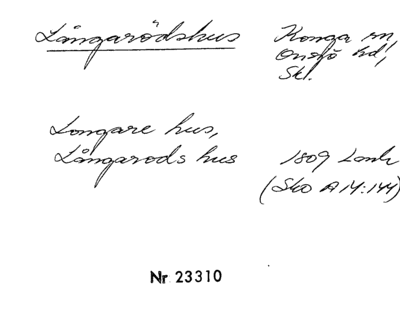 Långarödshus Konga sn,
Onsjö hd,
Skl.
Longare hus,
Långarods hus 1809 Lantm
(Sko A 14:144)
Nr 23310